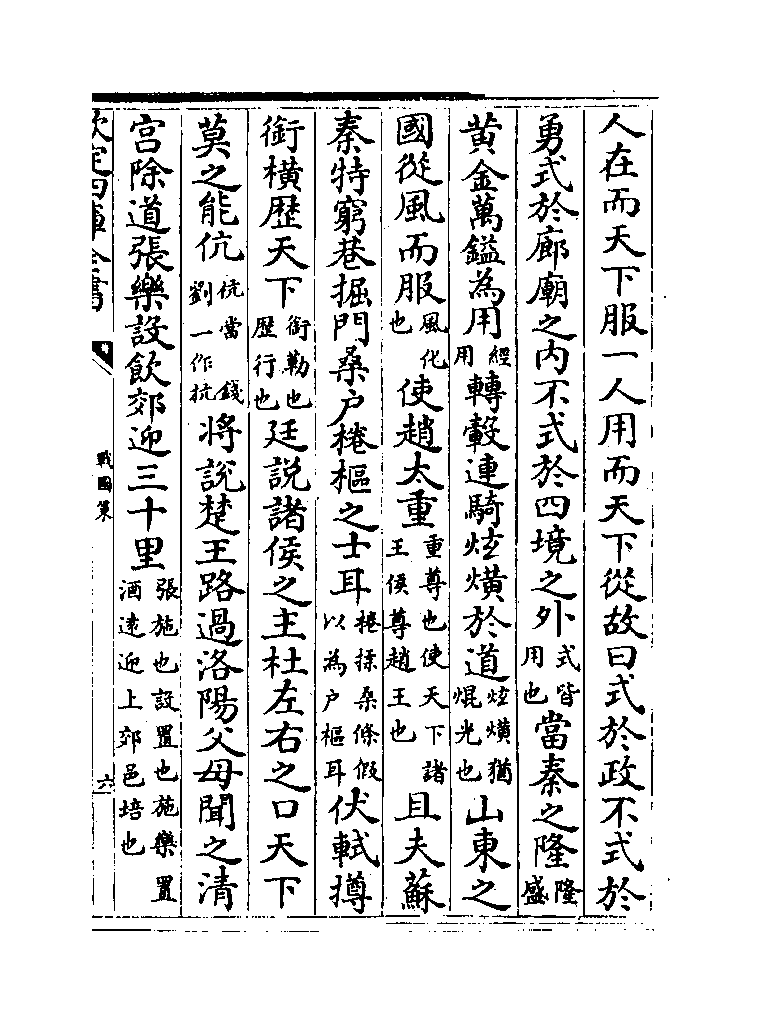 人在而天下服一人用而天下從故曰式於政不式於
勇式於廊廟之内不式於四境之外式皆用也當秦之隆隆盛
黄金萬鎰為用經用轉轂連騎炫熿於道炫熿猶焜光也山東之
國從風而服風化也使趙太重重尊也使天下諸王侯尊趙王也且夫蘇
秦特窮巷掘門桑户棬樞之士耳棬揉桑條假以為户樞耳伏軾撙
銜橫歴天下銜勒也歴行也廷説諸侯之主杜左右之口天下
莫之能伉伉當錢劉一作抗將説楚王路過洛陽父母聞之清
宫除道張樂設飲郊迎三十里張施也設置也施樂置酒逺迎上郊邑培也
欽定四庫全書
戰國策
六